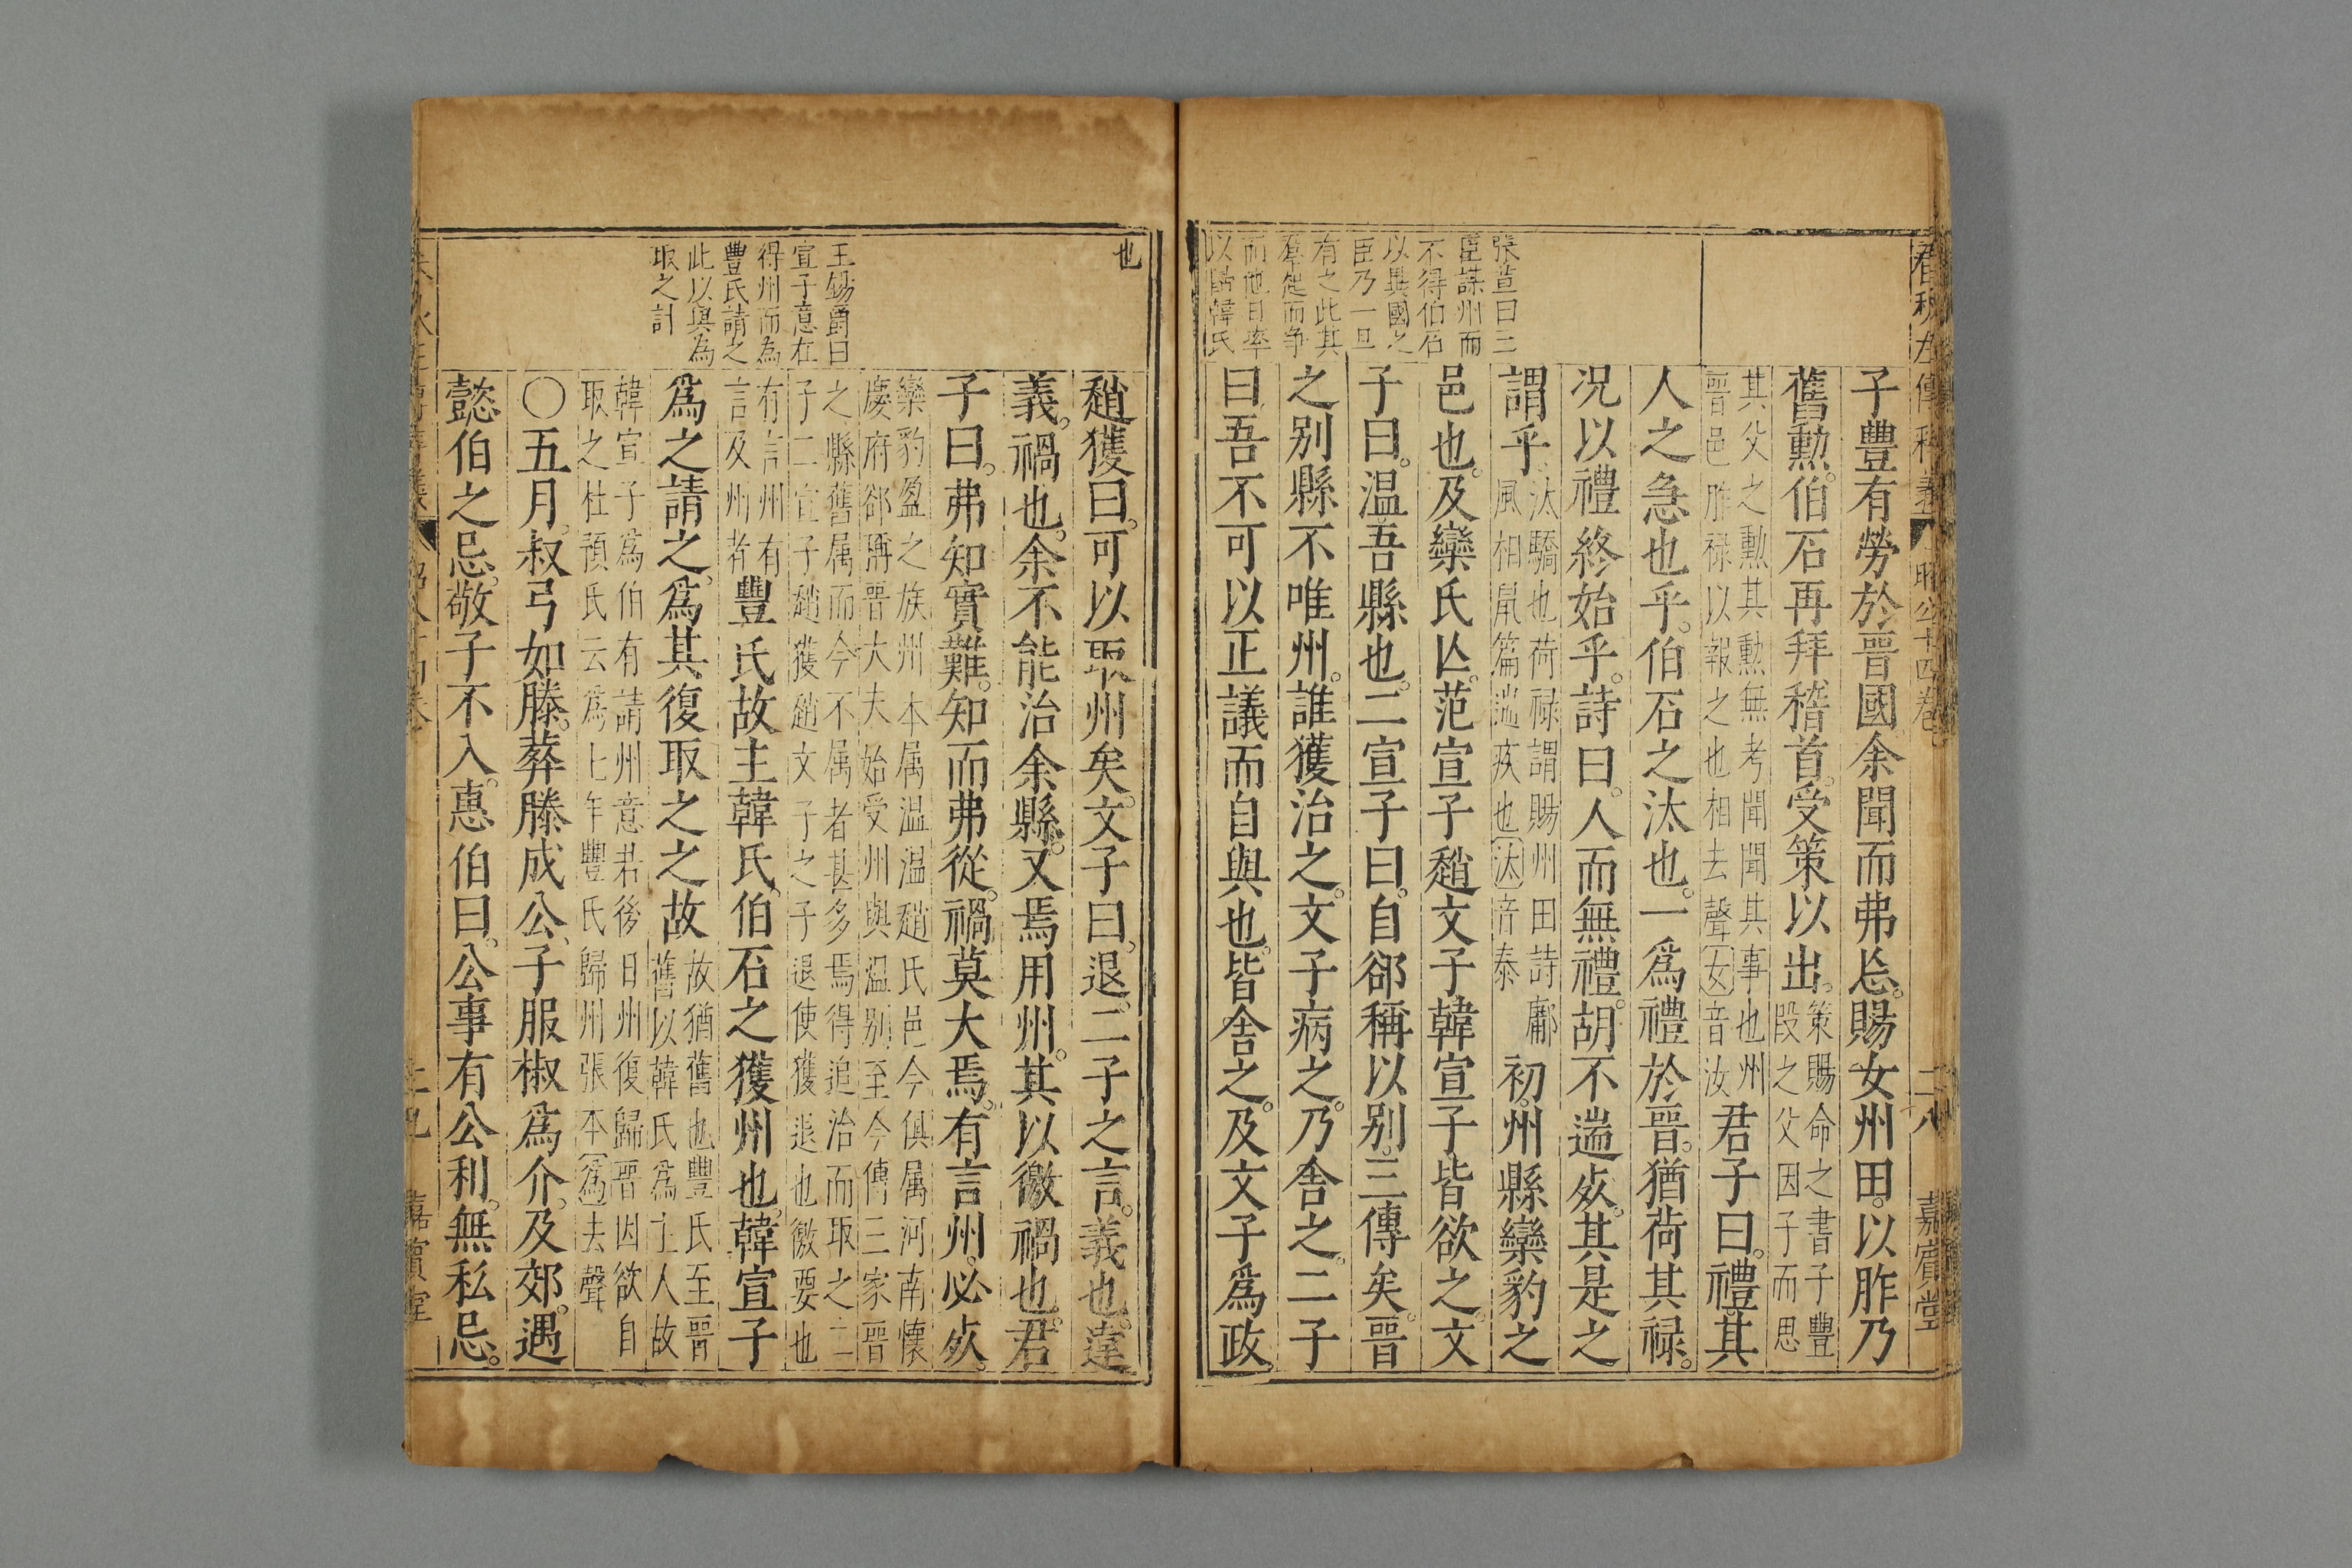 春秋左傳釋義
昭公十四卷
二八
嘉賓堂
張萱曰二
臣謀州而
不得伯石
以異國之
臣乃一旦
有之此其
羣起而争
而他日卒
以歸韓氏
子豐有勞於晋國余聞而弗忘賜女州田以胙乃
舊勲伯石再拜稽首受策以出策賜命之書子豐
段之父因子而思
其父之勲其勲無考聞聞其事也州
晋邑胙禄以報之也相去聲女音汝君子曰禮其
人之急也乎伯石之汰也一爲禮於晋猶荷其禄
况以禮終始乎詩曰人而無禮胡不遄㱯其是之
謂乎汰驕也荷禄謂賜州田詩鄘
風相鼠篇遄疾也汰音泰初州縣欒豹之
邑也及欒氏亾范宣子趙文子韓宣子皆欲之文
子曰温吾縣也二宣子曰自郤稱以别三傳矣晋
之别縣不唯州誰獲治之文子病之乃舍之二子
曰吾不可以正議而自與也皆舍之及文子爲政
也
王錫爵曰
宣子意在
得州而為
豐氏請之
此以與為
取之計
趙獲曰可以取州矣文子曰退二子之言義也違
義禍也余不能治余縣又焉用州其以徼禍也君
子曰弗知實難知而弗從禍莫大焉有言州必㱯
欒豹盈之族州本属温温趙氏邑今俱属河南懷
慶府郤稱晋大夫始受州與温别至今傳三家晋
之縣舊属而今不属者甚多焉得追治而取之二
子二宣子趙獲趙文子之子退使獲退也徼要也
有言州有
言及州者豐氏故主韓氏伯石之獲州也韓宣子
爲之請之爲其復取之之故故猶舊也豐氏至晋
舊以韓氏爲主人故
韓宣子爲伯有請州意若後日州復歸晋因欲自
取之杜預氏云爲七年豐氏歸州張本爲去聲
○五月叔弓如滕葬滕成公子服椒爲介及郊遇
懿伯之忌敬子不入惠伯曰公事有公利無私忌
嘉賓堂